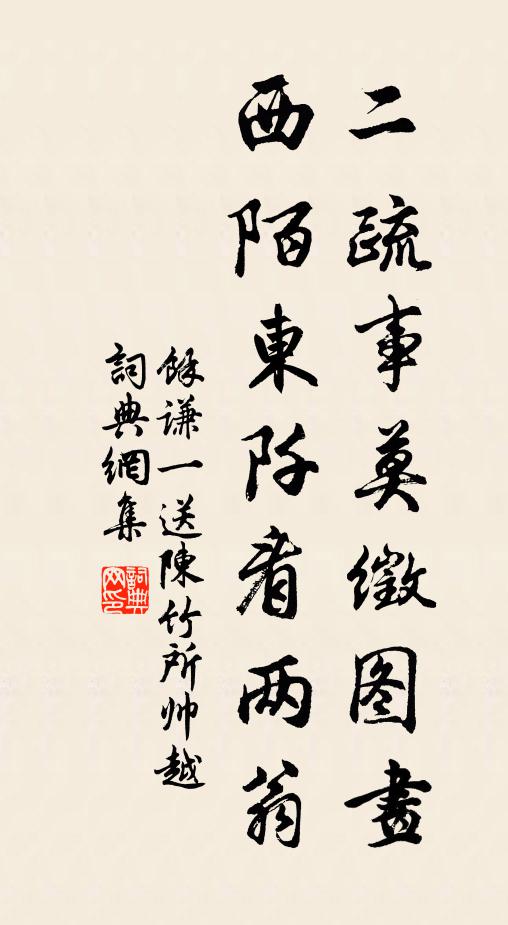 二疏事莫徵图畫
西陌東阡看两翁
餘謙一送陳竹所帅越
詞典網集
詞典網印